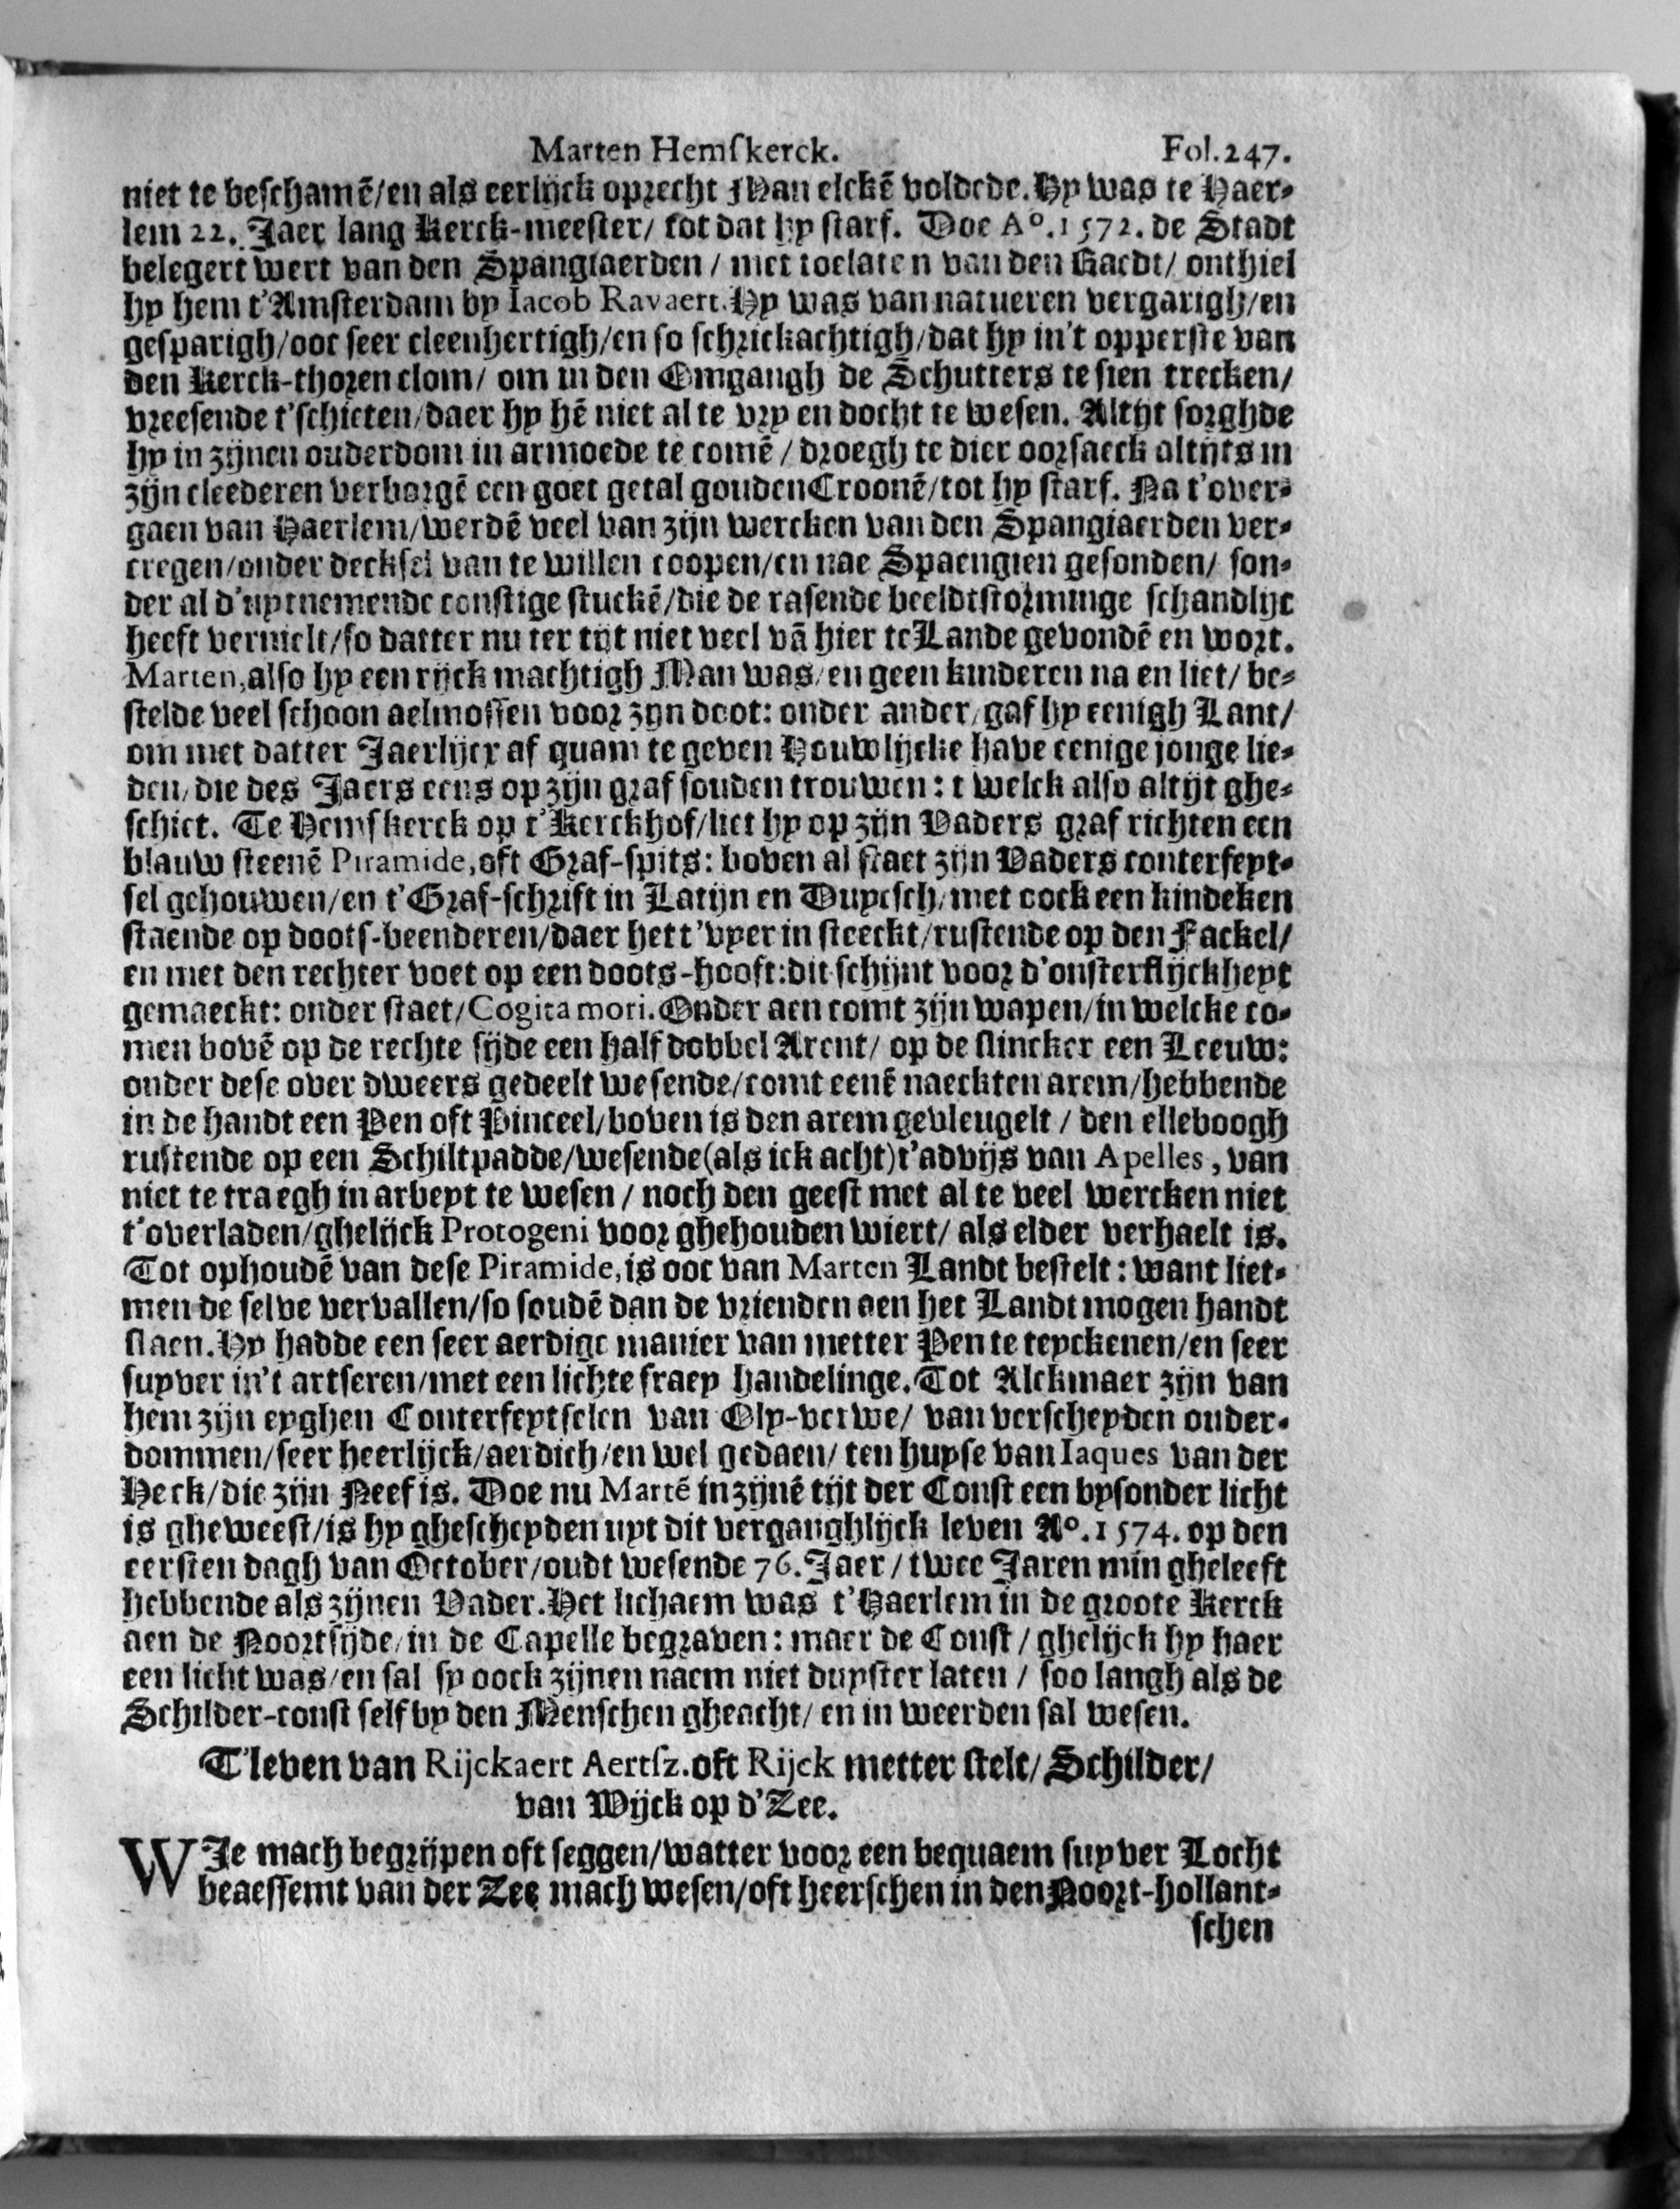 Marten Hemſkerck. Fol.247.
niet te beschamē/en als eerlijck oprecht Man elckē voldede. Hy was te Haer-
lem 22. Jaer lang Kerck-meester/ tot dat hy starf. Doe A°.1572. de Stadt
belegert wert van den Spangiaerden / met toelaten van den Raedt/ onthiel
hy hem t'Amsterdam by Iacob Ravaert. Hy was van natueren vergarigh/en
gesparigh/ooc seer cleenhertigh/en so schrickachtigh/dat hy in't opperste van
den Kerck-thoren clom/ om in den Omgangh de Schutters te sien trecken/
vreesende t'schieten/daer hy hē niet al te vry en docht te wesen. Altijt sorghde
hy in zijnen ouderdom in armoede te comē / droegh te dier oorsaeck altijts in
zijn cleederen verborgē een goet getal gouden Croonē/tot hy starf. Na t'over-
gaen van Haerlem/werdē veel van zijn wercken van den Spangiaerden ver-
cregen/onder decksel van te willen coopen/en nae Spaengien gesonden/ son-
der al d'uytnemende constige stuckē/die de rasende beeldtstorminge schandlijc
heeft vernielt/so datter nu ter tijt niet veel vā hier te Lande gevondē en wort.
Marten, also hy een rijck machtigh Man was/en geen kinderen na en liet/ be-
stelde veel schoon aelmossen voor zijn doot: onder ander/gaf hy eenigh Lant/
om met datter Jaerlijcx af quam te geven Houwlijcke have eenige jonge lie-
den/die des Jaers eens op zijn graf souden trouwen: t welck also altijt ghe-
schiet. Te Hemskerck op t'Kerckhof/liet hy op zijn Vaders graf richten een
blauw steenē Piramide, oft Graf-spits: boven al staet zijn Vaders conterfeyt-
sel gehouwen/en t'Graf-schrift in Latijn en Duytsch/met oock een kindeken
staende op doots-beenderen/daer het t'vyer in steeckt/rustende op den Fackel/
en met den rechter voet op een doots-hooft:dit schijnt voor d'onsterflijckheyt
gemaeckt: onder staet/Cogita mori. Onder aen comt zijn wapen/in welcke co-
men bovē op de rechte sijde een half dobbel Arent/ op de slincker een Leeuw:
onder dese over dweers gedeelt wesende/comt eenē naeckten arem/hebbende
in de handt een Pen oft Pinceel/boven is den arem gevleugelt / den elleboogh
rustende op een Schiltpadde/wesende(als ick acht)t'advijs van Apelles, van
niet te traegh in arbeyt te wesen / noch den geest met al te veel wercken niet
t'overladen/ghelijck Protogeni voor ghehouden wiert/ als elder verhaelt is.
Tot ophoudē van dese Piramide, is ooc van Marten Landt bestelt: want liet-
men de selve vervallen/so soudē dan de vrienden aen het Landt mogen handt
slaen. Hy hadde een seer aerdige manier van metter Pen te teyckenen/en seer
suyver in't artseren/met een lichte fraey handelinge. Tot Alckmaer zijn van
hem zijn eyghen Conterfeytselen van Oly-verwe/ van verscheyden ouder-
dommen/seer heerlijck/aerdich/en wel gedaen/ ten huyse van Iaques van der
Heck/die zijn Neef is. Doe nu Martē in zijnē tijt der Const een bysonder licht
is gheweest/is hy ghescheyden uyt dit verganghlijck leven A°.1574. op den
eersten dagh van October/oudt wesende 76. Jaer / twee Jaren min gheleeft
hebbende als zijnen Vader. Het lichaem was t'Haerlem in de groote Kerck
aen de Noortsijde/in de Capelle begraven: maer de Const / ghelijck hy haer
een licht was/en sal sy oock zijnen naem niet duyster laten / soo langh als de
Schilder-const self by den Menschen gheacht/ en in weerden sal wesen.
T'leven van Rijckaert Aertſz. oft Rijck metter stelt/ Schilder/
van Wijck op d'Zee.
WIe mach begrijpen oft seggen/watter voor een bequaem suyver Locht
beaessemt van der Zee mach wesen/oft heerschen in den Noort-hollant-
schen